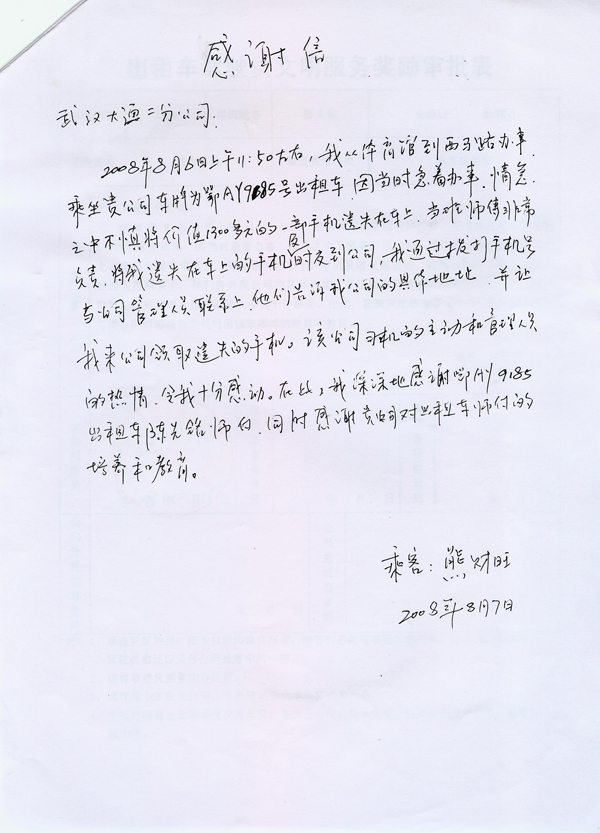 感谢信
武汉大通二分公司.
2008年8月6日上午11:50左右，我从体育馆到西马路办事.
乘坐贵公司车牌为鄂AY9185号出租车.因当时急着办事.情急
之中不慎将价值1300多元的一部手机遗失在车上.当班师傅非常
负责.将我遗失在车上的手机及时交到公司.我通过拨打手机号
与公司管理人员联系上.他们告诉我公司的具体地址.并让
我来公司领取遗失的手机。该公司司机的主动和管理人员
的热情.令我十分感动。在此，我深深地感谢鄂AY9185
出租车陈先铭师付.同时感谢贵公司对出租车师付的
培养和教育。
乘客：熊财旺
2008年8月7日